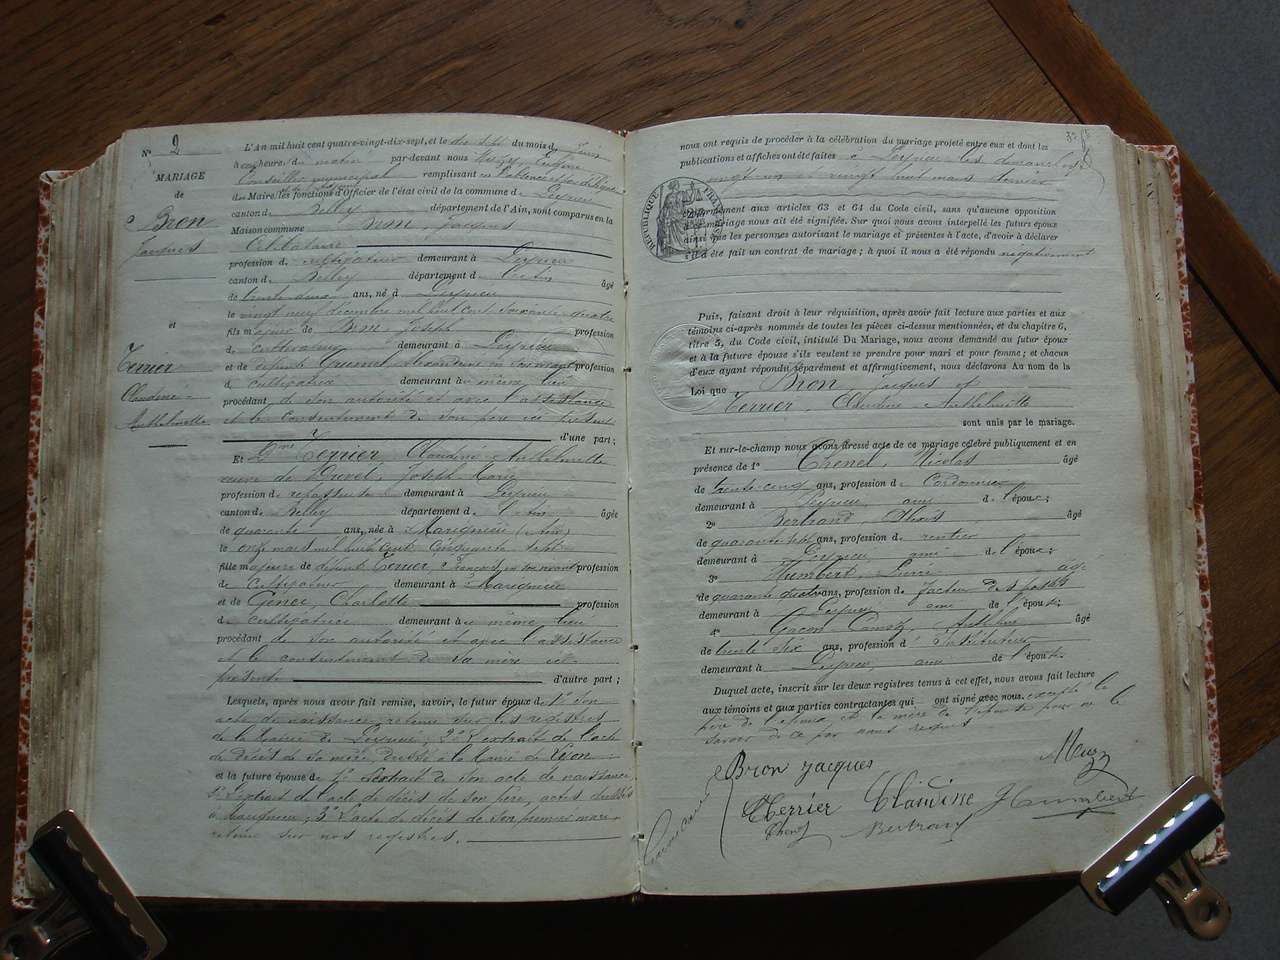 N° 2
MARIAGE
de
Bron
Jacques
et
Terrier
Claudine
Anthelmette
L'An mil huit cent quatre-vingt-dix-sept, et le dix sept du mois d Juin
à heures du matin par-devant nous Eugène
Conseiller municipal remplissant en l'absence
de Maire, les fonctions d'Officier de l'état civil de la commune de Peyrieu
canton de Belley département de l'Ain, sont comparus en la
Maison commune Bron Jacques
Célibataire
profession de cultivateur demeurant à Peyrieu
canton de Belley département de l'Ain âgé
de trente ans, né à Peyrieu
le vingt neuf décembre mil huit cent soixante quatre
fils majeur de Bron Joseph profession
de cultivateur demeurant à Peyrieu
et de défunte en son vivant profession
d cultivatrice demeurant à même lieu
procédant de son autorité et avec l'assistance
et le consentement de son père ici présent
d'une part;
Et Dme Terrier Claudine Anthelmette
veuve de Joseph Marie
profession de repasseuse demeurant à Peyrieu
canton de Belley département de l'Ain âgée
de quarante ans, née à Marignieu (Ain)
le onze mars mil huit cent cinquante sept
fille majeure de défunt Terrier François en son vivant profession
de cultivateur demeurant à Marignieu
et de Génci Charlotte profession
de cultivatrice demeurant à même lieu
procédant de son autorité et avec l'assistance
et le consentement de sa mère ici
présente d'autre part;
Lesquels, après nous avoir fait remise, savoir, le futur époux de 1° son
acte de naissance retenu sur les registres
de la mairie de Peyrieu; 2° l'extrait de l'acte
de décès de sa mère, dressé à la mairie de Lyon
et la future épouse de 1° l'extrait de son acte de naissance
2° extrait de l'acte de décès de son père, actes dressés
à Marignieu; 3° l'acte de décès de son premier mari
retenu sur nos registres.
nous ont requis de procéder à la célébration du mariage projeté entre eux et dont les
publications et affiches ont été faites à Peyrieu les dimanches
vingt huit mars dernier
conformément aux articles 63 et 64 du Code civil, sans qu'aucune opposition
à ce mariage nous ait été signifiée. Sur quoi nous avons interpellé les futurs époux
ainsi que les personnes autorisant le mariage et présentes à l'acte, d'avoir à déclarer
s'il a été fait un contrat de mariage; à quoi il nous a été répondu négativement
RÉPUBLIQUE FRANÇAISE
Puis, faisant droit à leur réquisition, après avoir fait lecture aux parties et aux
témoins ci-après nommés de toutes les pièces ci-dessus mentionnées, et du chapitre 6,
titre 5, du Code civil, intitulé Du Mariage, nous avons demandé au futur époux
et à la future épouse s'ils veulent se prendre pour mari et pour femme; et chacun
d'eux ayant répondu séparément et affirmativement, nous déclarons Au nom de la
Loi que Bron Jacques et
Terrier Claudine Anthelmette
sont unis par le mariage.
Et sur-le-champ nous avons dressé acte de ce mariage célébré publiquement et en
présence de 1° Chenel Nicolas âgé
de trente-cinq ans, profession de Cordonnier
demeurant à Peyrieu ami de l'époux;
2° Bertrand Alexis âgé
de quarante sept ans, profession de rentier
demeurant à Peyrieu ami de l'époux;
3° Humbert âgé
de quarante quatre ans, profession de facteur des postes
demeurant à Peyrieu ami de l'époux;
4° Gacon âgé
de trente six ans, profession d'Instituteur
demeurant à Peyrieu ami de l'époux
Duquel acte, inscrit sur les deux registres tenus à cet effet, nous avons fait lecture
aux témoins et aux parties contractantes qui ont signé avec nous, excepté le
père de l'époux, et la mère de l'épouse pour ne le
savoir de ce par nous requis
Bron Jacques
Terrier Claudine J Humbert
Chenel Bertrand